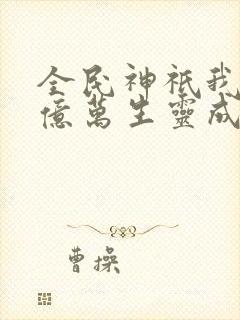 全民神祇我
億萬生靈成
曹操